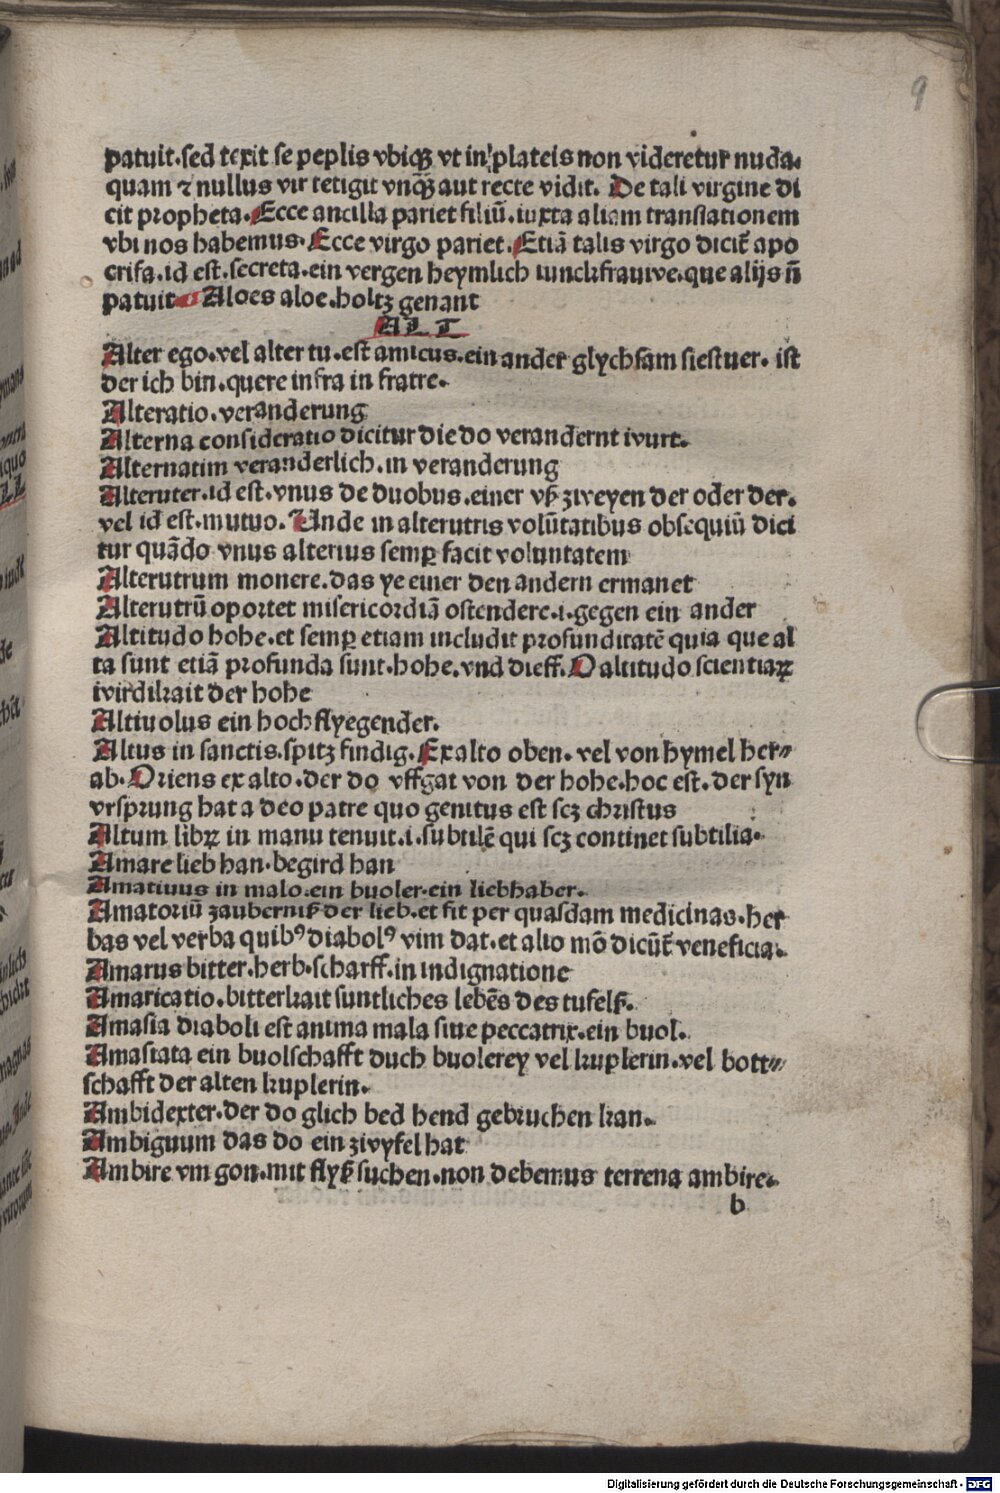 9
patuit.sed texit se peplis vbiqꝫ vt in plateis non videretur nuda.
quam ⁊ nullus vir tetigit vnq̄ꝫ aut recte vidit. De tali virgine di
cit propheta. Ecce ancilla pariet filiū.iuxta aliam translationem
vbi nos habemus. Ecce virgo pariet. Etiā talis virgo dicit̄ apo
crifa.id est.secreta.ein vergen heymlich iunckfrauwe.que alijs n̄
patuit. Aloes aloe.holtz genant
ALT
Alter ego.vel alter tu.est amicus.ein ander glychsam siestuer. ist
der ich bin.quere infra in fratre.
Alteratio.veranderung
Alterna consideratio dicitur die do verandernt wurt.
Alternatim veranderlich.in veranderung
Alteruter.id est.vnus de duobus.einer vß zweyen der oder der.
vel id est.mutuo. Unde in alterutris volūtatibus obsequiū dici
tur quādo vnus alterius semꝑ facit voluntatem
Alterutrum monere.das ye einer den andern ermanet
Alterutrū oportet misericordiā ostendere.i.gegen ein ander
Altitudo hohe.et semꝑ etiam includit profunditatē quia que al
ta sunt etiā profunda sunt.hohe.vnd dieff. O altitudo scientiaꝝ
wirdikait der hohe
Altiuolus ein hochflyegender.
Altus in sanctis.spitz findig. Ex alto oben. vel von hymel her⸗
ab. Oriens ex alto.der do vffgat von der hohe.hoc est.der syn
vrsprung hat a deo patre quo genitus est scꝫ christus
Altum libꝝ in manu tenuit.i.subtilē qui scꝫ continet subtilia.
Amare lieb han.begird han
Amatiuus in malo.ein buoler.ein liebhaber.
Amatoriū zauberniß der lieb.et fit per quasdam medicinas.her
bas vel verba quibꝰ diabolꝰ vim dat.et alio mō dicūt̄ veneficia.
Amarus bitter.herb.scharff.in indignatione
Amaricatio.bitterkait suntliches lebēs des tufelß.
Amasia diaboli est anima mala siue peccatrix.ein buol.
Amastata ein buolschafft duch buolerey vel kuplerin.vel bott⸗
schafft der alten kuplerin.
Ambidexter.der do glich bed hend gebruchen kan.
Ambiguum das do ein zwyfel hat
Ambire vm gon.mit flyß suchen.non debemus terrena ambire.
b
Digitalisierung gefördert durch die Deutsche Forschungsgemeinschaft - DFG